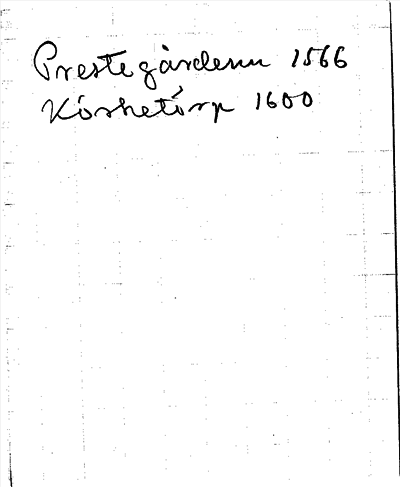 Prestegårdenn 1566
Körketörp 1600